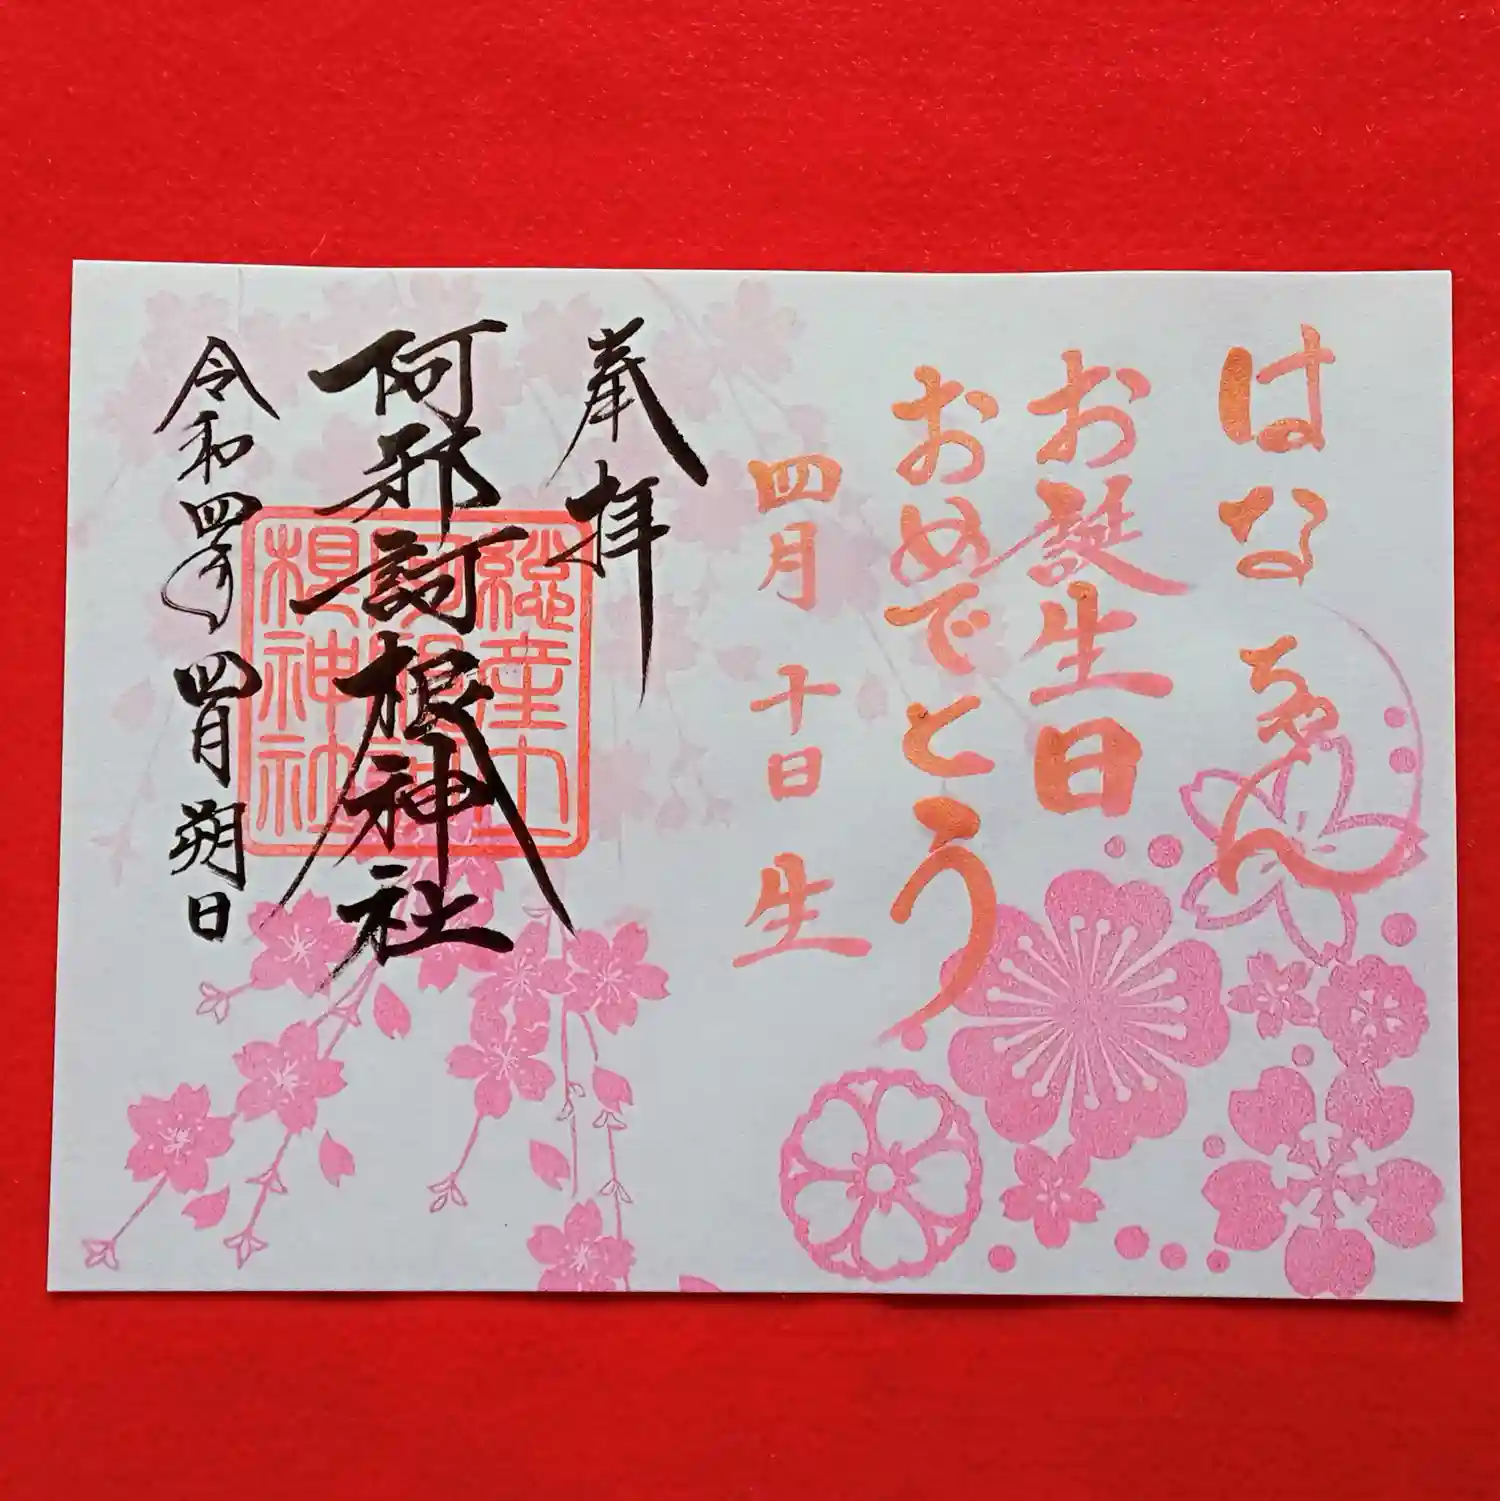 はなちゃん
お誕生日
おめでとう
四月十日生
奉拝
阿邪訶根神社
令和四年四月朔日
総産土
根神社